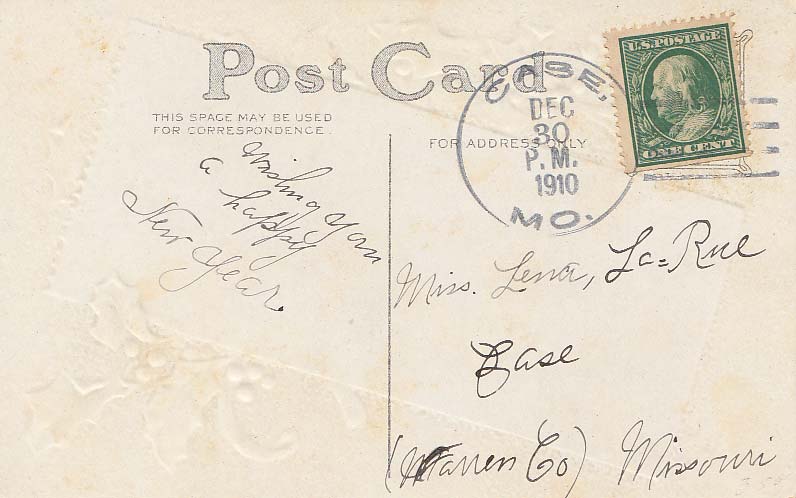 Post Card
THIS SPACE MAY BE USED
FOR CORRESPONDENCE.
FOR ADDRESS ONLY
CASE,
DEC
30
P.M.
1910
MO.
U.S. POSTAGE
ONE CENT
Wishing you
a happy
New Year.
Miss. Lena, La=Rue
Case
(Warren Co) Missouri